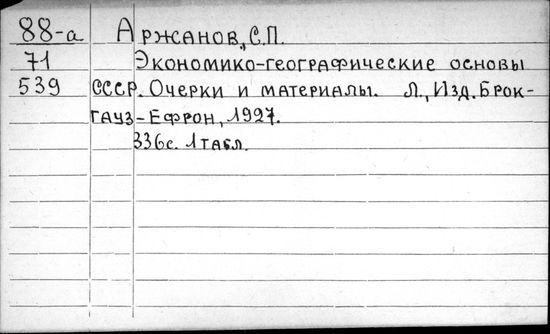 88-а Аржанов, С.П.
71 Экономико-географические основы
539 СССР. Очерки и материалы. Л., Изд. Брок-
гауз-Ефрон, 1927.
336с. 1 табл.